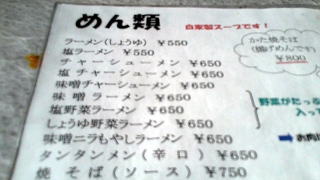 めん類
自家製スープです!
ラーメン(しょうゆ) ¥550
塩ラーメン ¥550
チャーシューメン ¥650
塩チャーシューメン ¥650
味噌チャーシューメン ¥650
味噌ラーメン ¥650
塩野菜ラーメン ¥650
しょうゆ野菜ラーメン ¥650
味噌ニラもやしラーメン ¥650
タンタンメン(辛口) ¥650
焼そば(ソース) ¥750
かた焼そば
(揚げめんです)
¥800
野菜がたっ
入っ